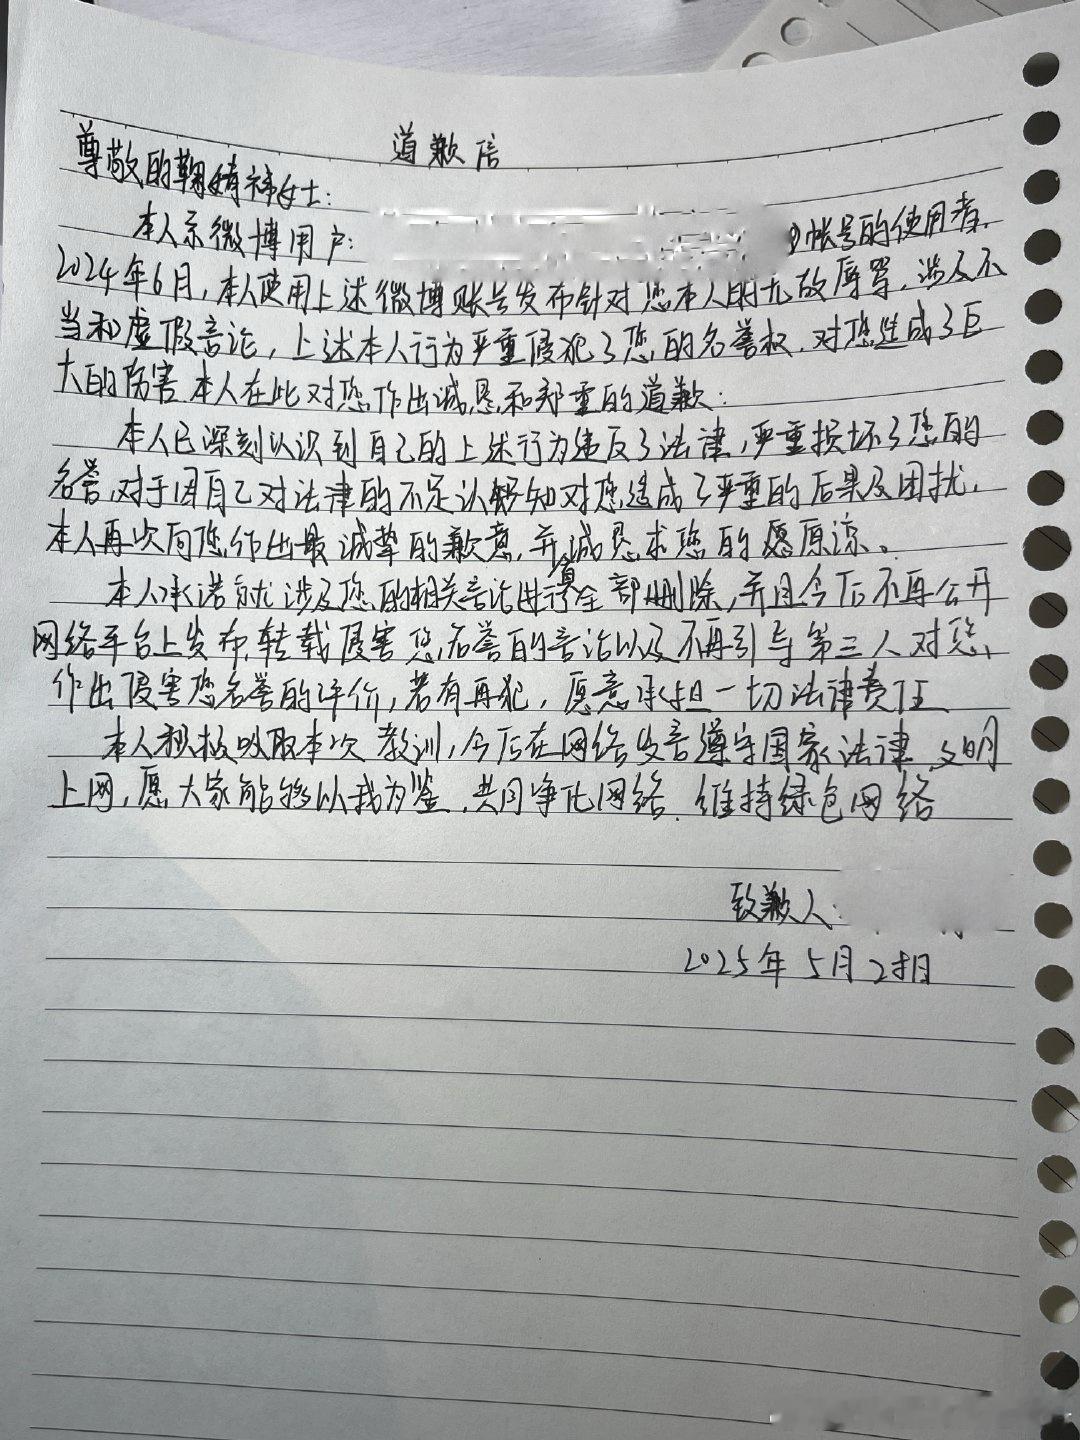 道歉信
尊敬的鞠婧祎女士：
本人系微博用户：帐号的使用者.
2024年6月，本人使用上述微博账号发布针对您本人的无故辱骂，涉及不
当和虚假言论，上述本人行为严重侵犯了您的名誉权，对您造成了巨
大的伤害.本人在此对您作出诚恳和郑重的道歉：
本人已深刻认识到自己的上述行为违反了法律，严重损坏了您的
名誉，对于因自己对法律的不足认够知对您造成了严重的后果及困扰，
本人再次向您作出最诚挚的歉意，并诚恳求您的原谅。
本人承诺就涉及您的相关言论进行全部删除，并且今后不再公开
网络平台上发布，转载侵害您名誉的言论以及不再引导第三人对您
作出侵害您名誉的评价，若有再犯，愿意承担一切法律责任
本人积极吸取本次教训，今后在网络发言遵守国家法律，文明
上网，愿大家能够以我为鉴，共同净化网络，维持绿色网络
致歉人：
2025年5月2日